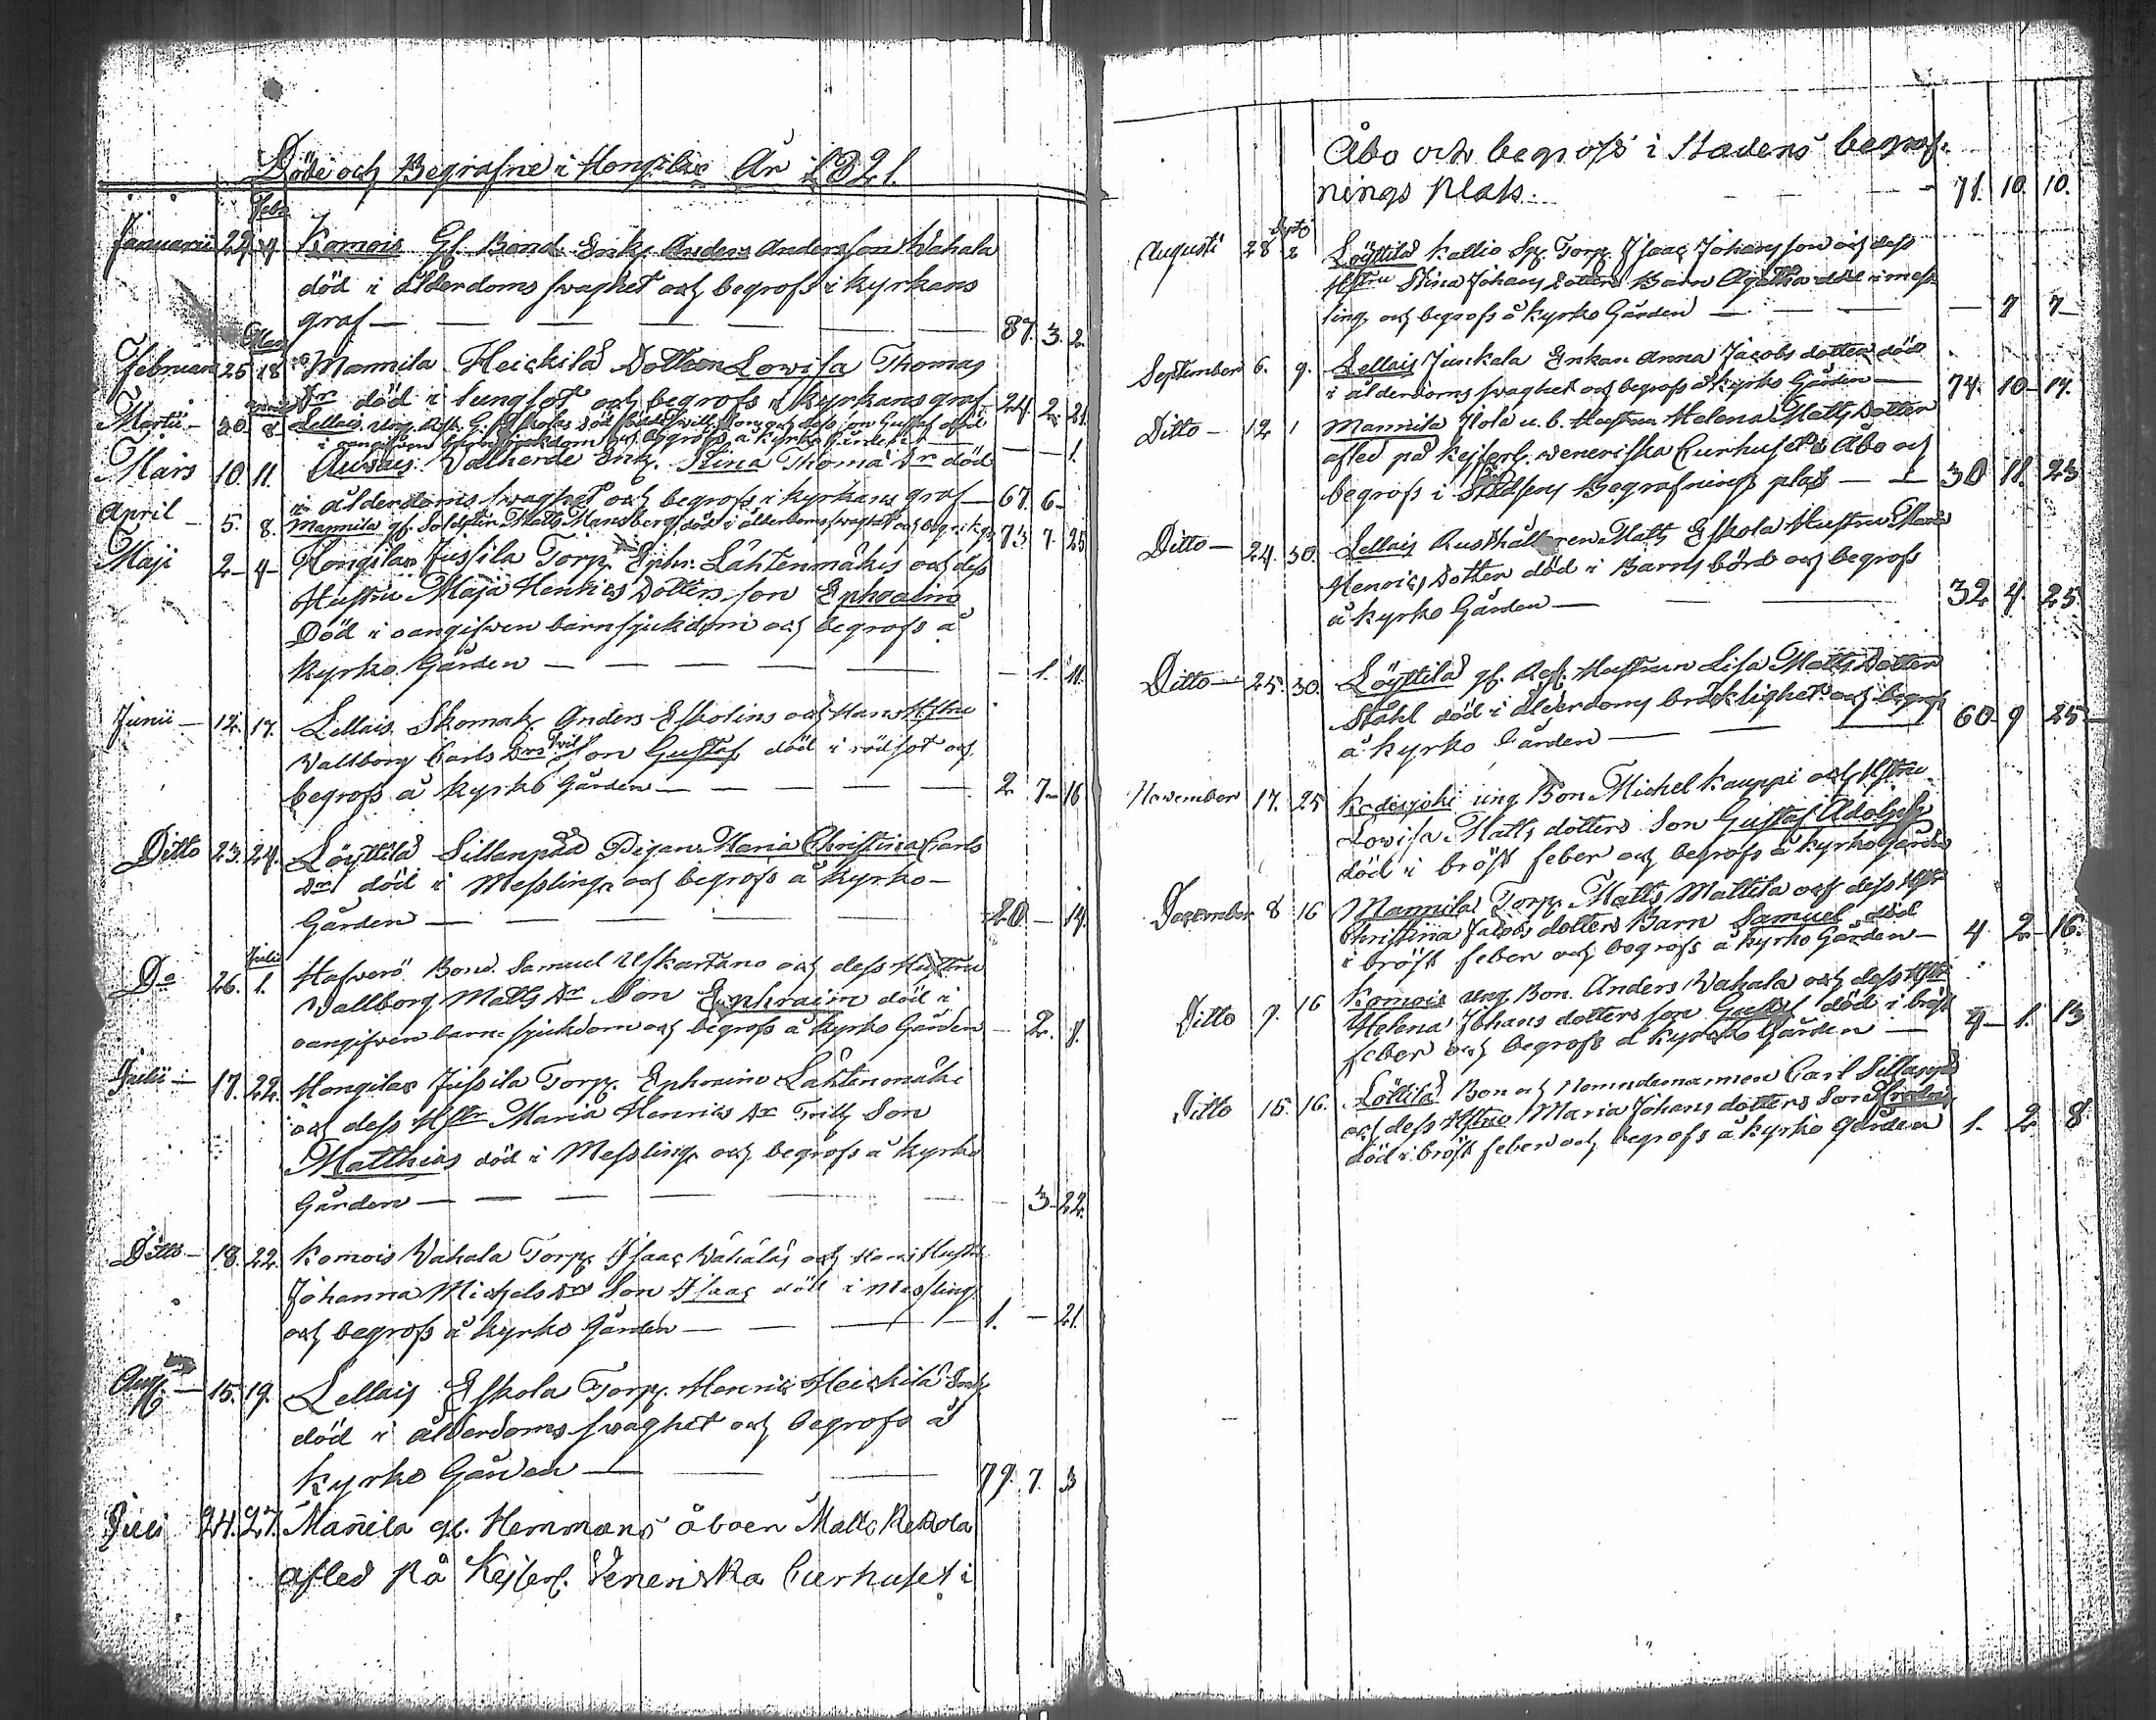 Döde och Begrafne i Hongilax År 1821.
Febr
Januarii 22 4 Komois Gl. Bond. Enkl. Anders Andersson Wahala
död i ålderdoms swaghet och begrofs i Kyrkans
graf — — — — — 87. 3. 2.
Mars
Februari 25 18 Mannila Heickilä Dottren Lowisa Thomas
Dr död i lungsot och begrofs i Kyrkans graf 24. 2. 21.
Martii 20. 8 Lellais
— — 1.
Mars 10. 11. Walherde Enk. Stina Thomæ Dr död
i ålderdoms swaghet och begrofs i Kyrkans graf — 67. 6 -
April — 5. 8. Mannila gl. Soldaten Matts Mansberg, död i ålderdoms swaghet och begr. i K.g. 73 7. 25
Maji 2 — 4 — Hongilax Jussila Torp. Ephr. Lähtenmäkis och dess
Hustru Maja Henrics Dotters son Ephraim
Död i oangifwen barnsjukdom och begrofs å
Kyrko Gården — — — — — — 1. 11.
Junii — 12. 17. Lellais Skomak. Anders Eskolins och Hans Hstru
Wallborg Carls Drs Son Gustaf död i rödsot och
begrofs å Kyrko Gården — — — — 2 7 — 16
Ditto 23. 24. Löyttilä Sillanpää Pigan Maria Christina Carls
Dr död i Messling och begrofs å Kyrko-
Gården — — — — 20 — 14.
Julii
Do 26. 1. Hafwerö Bond. Samuel Uskartano och dess Hustru
Wallborg Matts Dr Son Ephraim död i
oangifwen barn sjukdom och begrofs å Kyrko Gården — 2. 8.
Julii — 17. 22. Hongilax Jussila Torp. Ephraim Lähtenmäki
och dess Hstr Maria Henrics Dr Twill Son
Matthias död i Messling och begrofs å Kyrko
Gården — — — — — — 3 — 22.
Ditto — 18. 22. Komois Wahala Torp. Isaac Wähäläs och Hans Hustru
Johanna Michels Drs Son Isaac död i Messling
och begrofs å Kyrko Gården — — — 1. — 21.
Aug — 15. 19. Lellais Eskola Torp. Henric Heickilä
död i ålderdoms swaghet och begrofs å
Kyrko Gården — — — 79. 7. 3
Juli 24. 27. Mañila gl. Hemmans åboen Matts Rekola
afled på Kejserl. Veneriska Curhuset i
Åbo och begrofs i Stadens begraf-
nings plats. — — — 71. 10. 10.
Septr
Augusti 28 2 Löyttilä Kallio Sp. Torp. Isaac Johansson och dess
Hstru Stina Johans Dotters Barn Agatha död i mess-
ling och begrofs å Kyrko Gården — — — — 7 7 —
September 6. 9. Lellais Junkala Enkan Anna Jacobs dotter död
i ålderdoms swaghet och begrofs å Kyrko Gården — 74. 10 — 17.
Ditto — 12 1 Mannila Hola u. b. Hustrun Helena Matts Dotter
afled på Kejserl. weneriska Curhuset i Åbo och
begrofs i Stadsens Begrafnings plats — — 30 11. 23
Ditto — 24. 30. Lellais Rusthållaren Matts Eskola Hustru Maria
Henrics Dotter död i Barns börd och begrofs
å Kyrko Gården — — — 32 4. 25.
Ditto — 25. 30. Löyttilä gl. Rgl. Hustrun Lisa Matts Dotter
Ståhl död i ålderdoms bräcklighet och begrofs
å Kyrko Gården — — — 60 9 25 —
November 17. 25 Kodisjoki ung Bon. Michel Kauppi och Hstru
Lowisa Matts dotters Son Gustaf Adolph
död i bröst feber och begrofs å Kyrko Gården
December 8 16 Mannila Torp. Matts Mattila och dess Hstr
Christina Jacobs dotters Barn Samuel död
i bröst feber och begrofs å Kyrko Gården — 4 2 — 16.
Ditto 9. 16 Komois ung Bon. Anders Wahala och dess Hstr
Helena Johans dotters son Gustaf död i bröst
feber och begrofs å Kyrko Gården — 4 — 1. 13
Ditto 15. 16. Löttilä Bon och Nemndemannen Carl Sillanpää
och dess Hstru Maria Johans dotters Son
död i bröst feber och begrofs å Kyrko gården 1. 2 8.